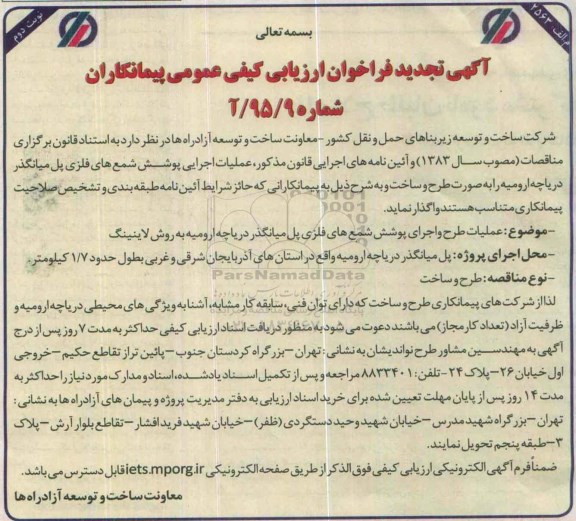 نوبت دوم
م الف ۲۵۶۳
بسمه تعالی
آگهی تجدید فراخوان ارزیابی کیفی عمومی پیمانکاران
شماره ۹۵/۹/آ
شرکت ساخت و توسعه زیربناهای حمل و نقل کشور - معاونت ساخت و توسعه آزادراه‌ها در نظر دارد به استناد قانون برگزاری
مناقصات (مصوب سال ۱۳۸۳) و آئین نامه های اجرایی قانون مذکور، عملیات اجرایی پوشش شمع های فلزی پل میانگذر
دریاچه ارومیه را به صورت طرح و ساخت و به شرح ذیل به پیمانکارانی که حائز شرایط آئین نامه طبقه بندی و تشخیص صلاحیت
پیمانکاری متناسب هستند واگذار نماید.
-موضوع: عملیات طرح و اجرای پوشش شمع های فلزی پل میانگذر دریاچه ارومیه به روش لاینینگ
-محل اجرای پروژه: پل میانگذر دریاچه ارومیه واقع در استان های آذربایجان شرقی و غربی بطول حدود ۱/۷ کیلومتر
-نوع مناقصه: طرح و ساخت
ParsNamadData
لذا از شرکت های پیمانکاری طرح و ساخت که دارای توان فنی، سابقه کار مشابه، آشنا به ویژگی های محیطی دریاچه ارومیه و
ظرفیت آزاد (تعداد کار مجاز) می باشند دعوت می شود به منظور دریافت اسناد ارزیابی کیفی حداکثر به مدت ۷ روز پس از درج
آگهی به مهندسین مشاور طرح نواندیشان به نشانی: تهران - بزرگراه کردستان جنوب - پائین تر از تقاطع حکیم - خروجی
اول خیابان ۲۶ - پلاک ۲۴ - تلفن: ۸۸۳۳۴۰۱ مراجعه و پس از تکمیل اسناد یادشده، اسناد و مدارک مورد نیاز را حداکثر به
مدت ۱۴ روز پس از پایان مهلت تعیین شده برای خرید اسناد ارزیابی به دفتر مدیریت پروژه و پیمان های آزادراه ها به نشانی:
تهران - بزرگراه شهید مدرس - خیابان شهید وحید دستگردی (ظفر) - خیابان شهید فرید افشار - تقاطع بلوار آرش - پلاک
۳ - طبقه پنجم تحویل نمایند.
ضمناً فرم آگهی الکترونیکی ارزیابی کیفی فوق الذکر از طریق صفحه الکترونیکی iets.mporg.ir قابل دسترس می باشد.
معاونت ساخت و توسعه آزادراه ها